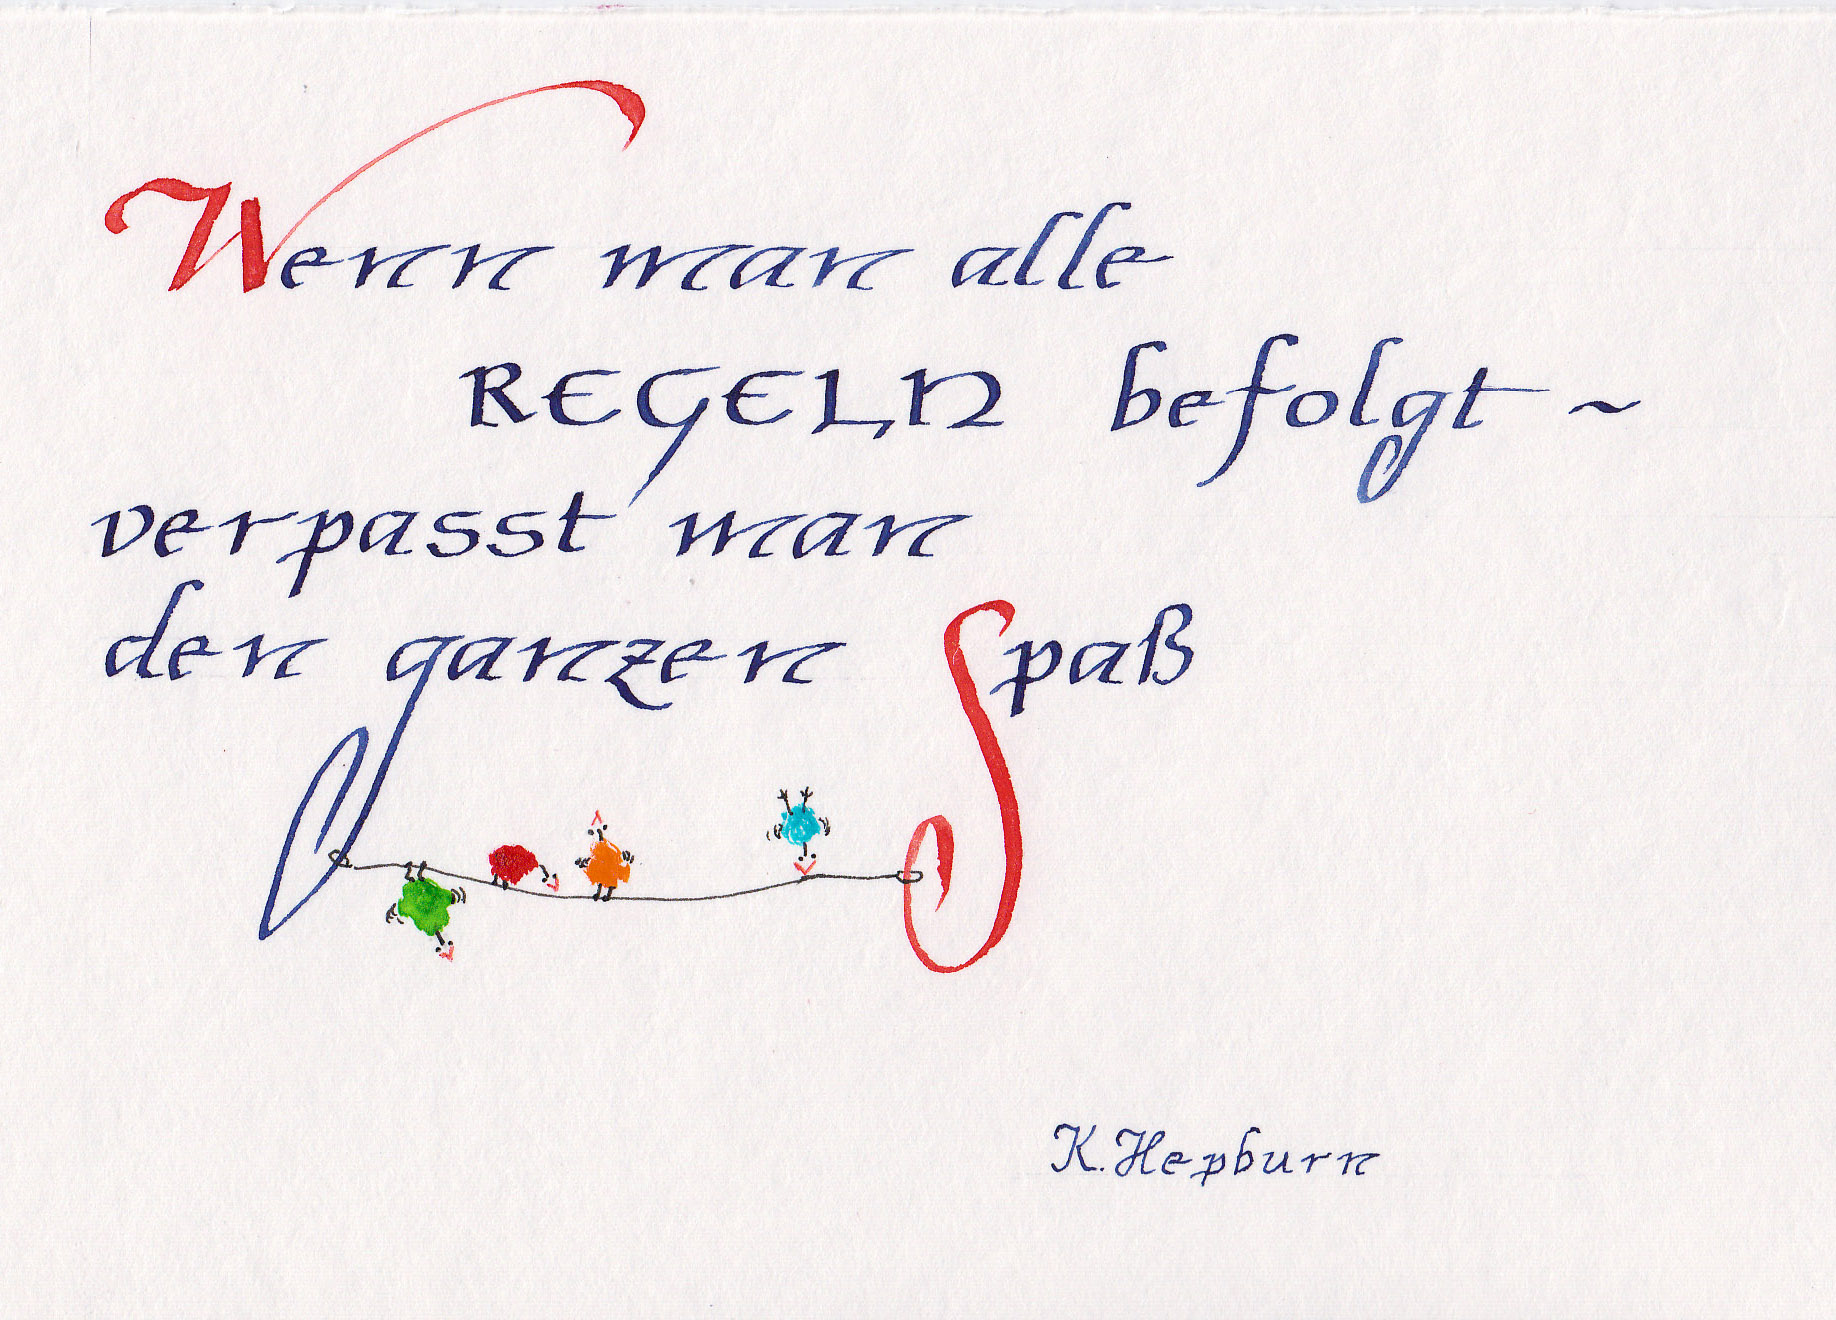 Wenn man alle
REGELN befolgt ~
verpasst man
den ganzen Spaß
K. Hepburn